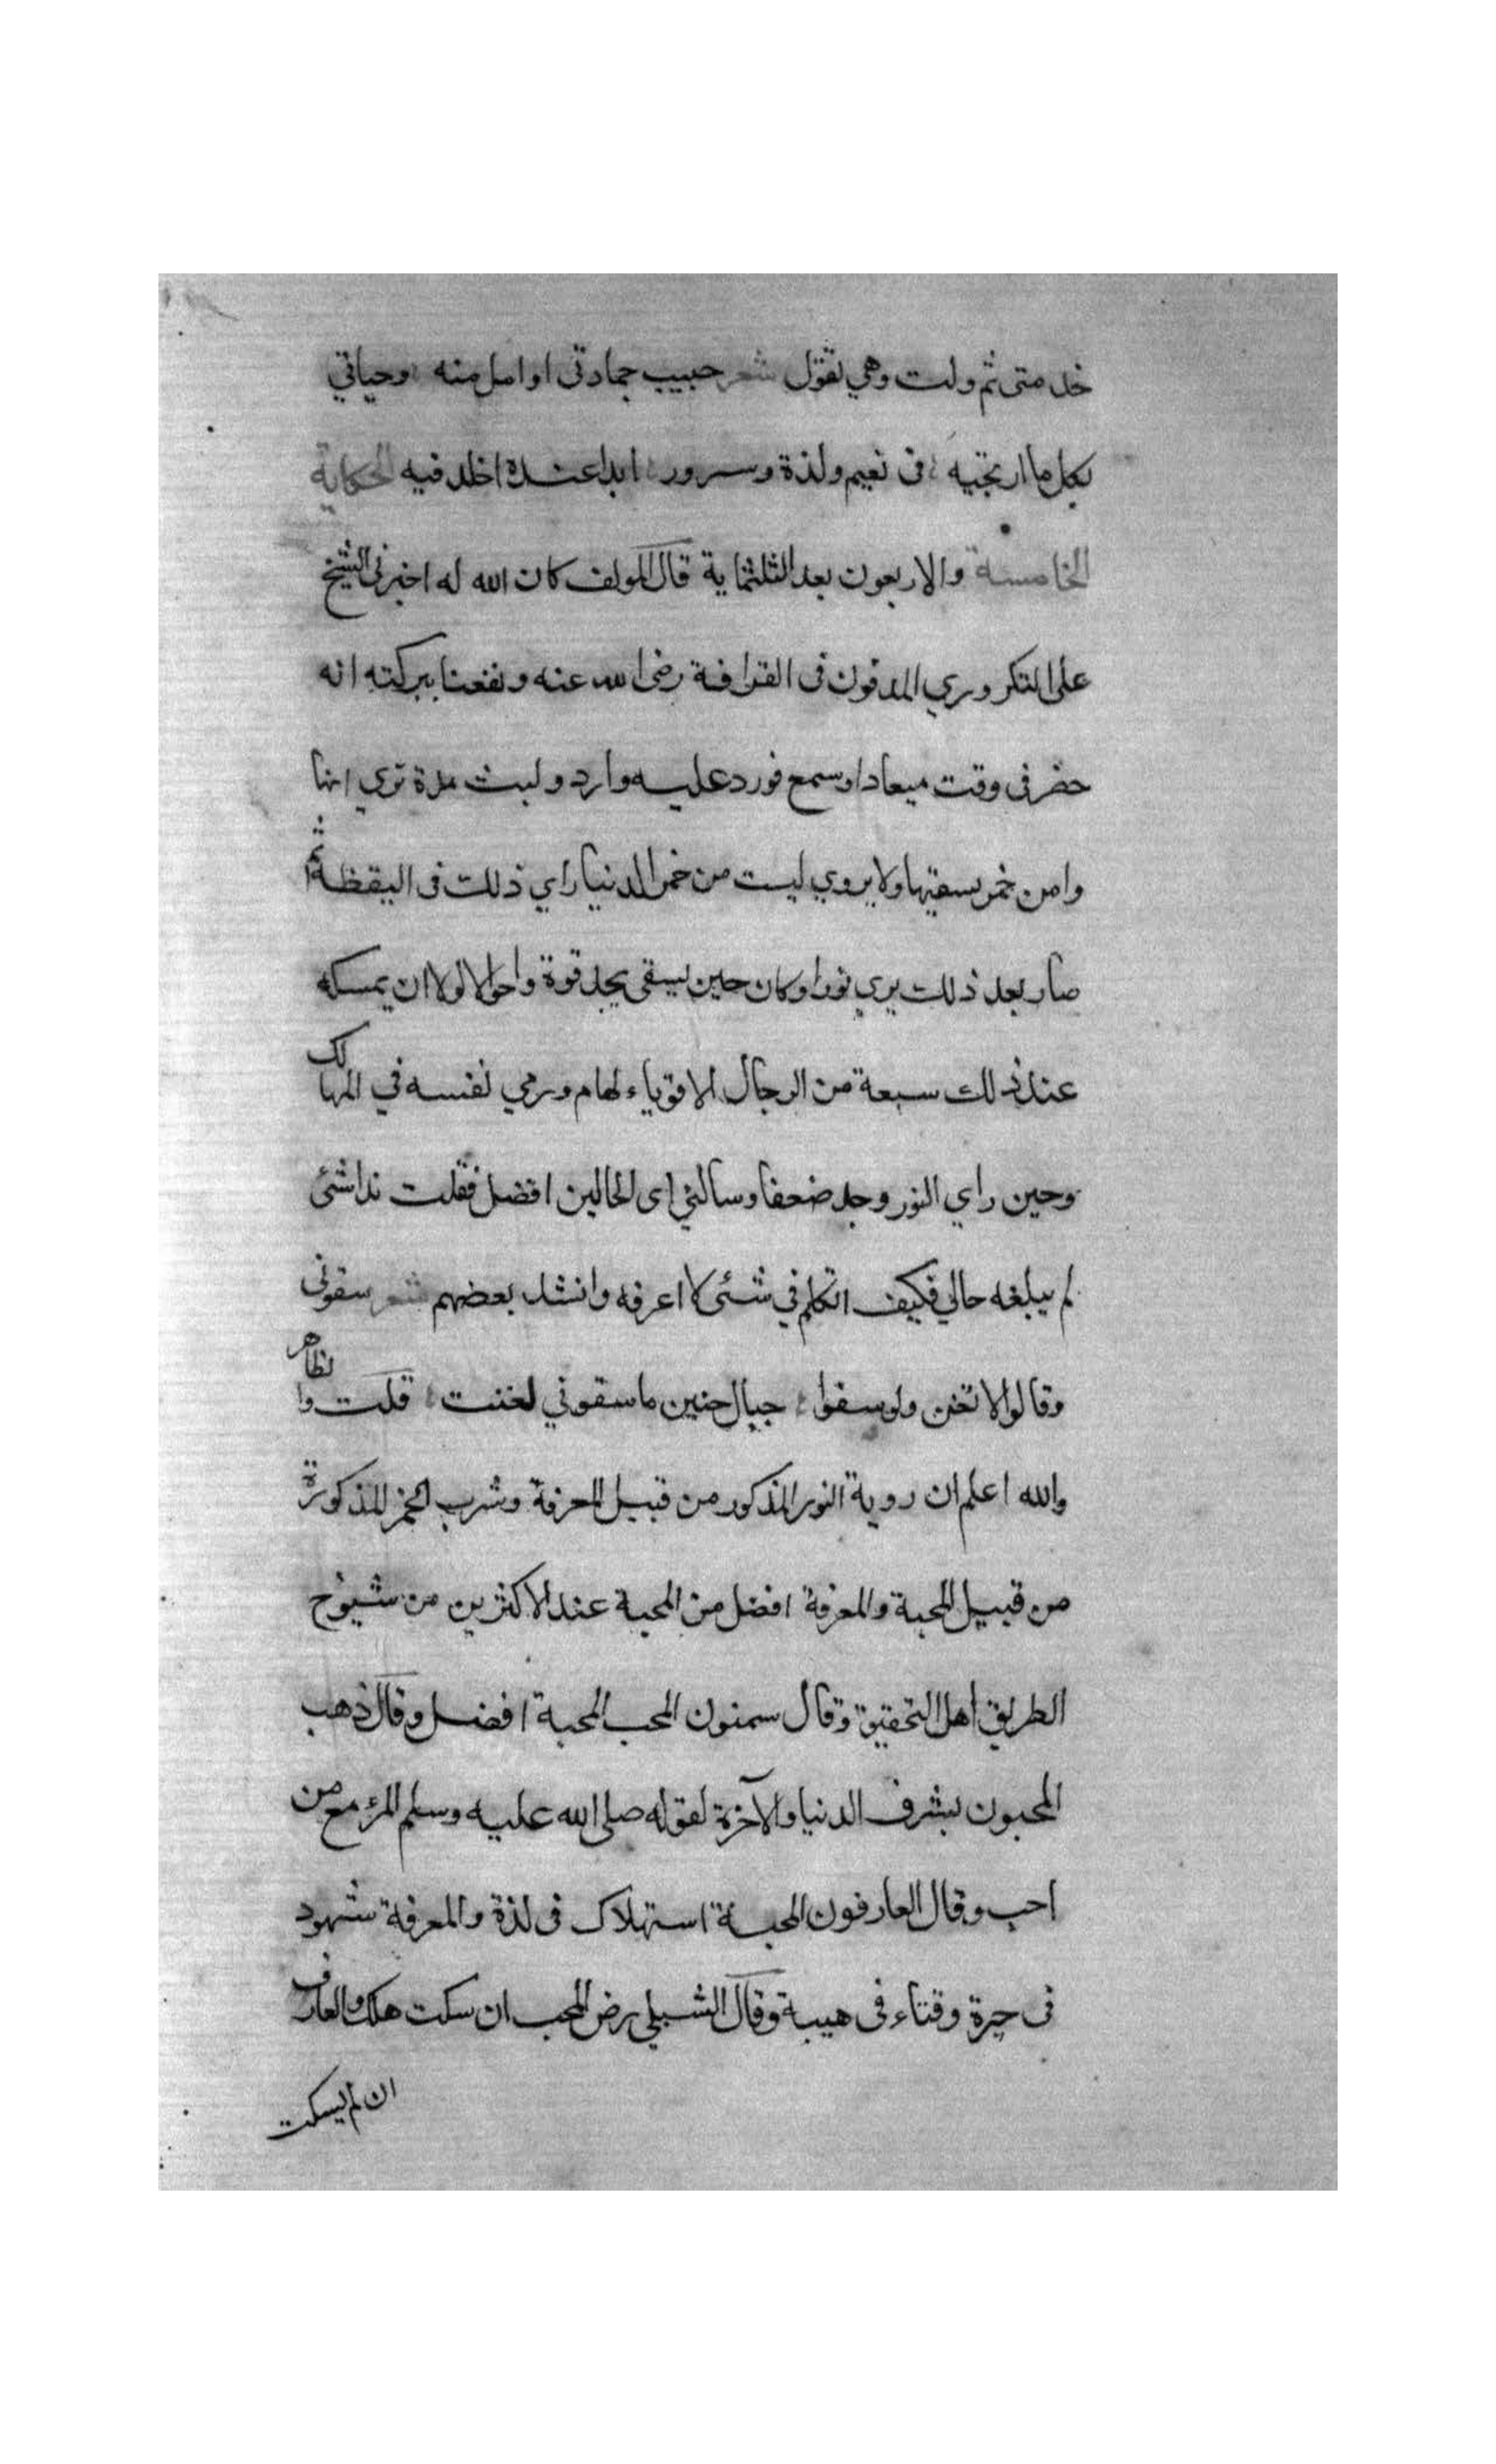 خدمتى ثم ولت وهي تقول شعر حبيب جماد تى اوامل منه وحياتي
بكل ما ارتجيه فى نعيم ولذة وسرور ابدا عنده اخلد فيه الحكاية
الخامسة والاربعون بعد الثلثماية قال المولف كان الله له اخبرنى الشيخ
على التكروري المدفون فى القرافة رضى الله عنه ونفعنا ببركته انه
حضر فى وقت ميعادا وسمع فورد عليه وارد ولبث مدة تري انها
وامن خمر يسقيها ولا يروي ليست من خمر الدنيا راي ذلك فى اليقظة ثم
صار بعد ذلك يري نورا وكان حين يسقى يجد قوة واحوالا لولا ان يمسكه
عند ذلك سبعة من الرجال الاقوياء لهام ورمي نفسه في المهالك
وحين راي النور وجد ضعفا وسالني اى الحالين افضل فقلت نداشئ
لم يبلغه حالي فكيف اتكلم في شئى لا اعرفه وانشد بعضهم شعر سقونى
وقالوا لا تغنى ولو سقوا جبال حنين ما سقوني لغنت قلت والظاهر
والله اعلم ان روية النور المذكور من قبيل المعرفة وشرب الخمر المذكورة
من قبيل المحبة والمعرفة افضل من المحبة عند الاكثرين من شيوخ
الطريق اهل التحقيق وقال سمنون المحب المحبة افضل وقال ذهب
المحبون بشرف الدنيا والآخرة لقوله صلى الله عليه وسلم المرء مع من
احب وقال العارفون المحبة استهلاك فى لذة والمعرفة شهود
فى حيرة وفناء فى هيبة وقال الشبلي رض المحب ان سكت هلك والعارف
ان لم يسكت